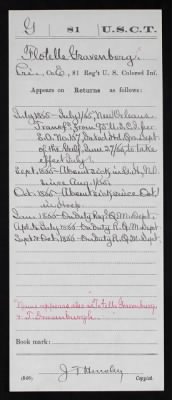 G 81 U.S.C.T.
Flotelle Gravenburg.
Pri., Co. E, 81 Reg't U. S. Colored Inf.
Appears on Returns as follows:
July 1865 - July 1/65, New Orleans
Transf'd from 73 U.S.C.I. per
S.O. No. 157, Gulf, Dept
of the Gulf, June 27/65 to take
effect July 1.
Sept. 1865 - Absent sick in N.O.
since Aug. 1/65.
Oct. 1865 - Absent sick since Oct. 1
in Hosp.
June 1866 - On Duty Reg'l Q. M. Dept.
Apl. to July 1866 - On Duty R. Q. M. Dept.
Sept. & Oct. 1866 - On Duty R. Q. M. Dept.
Name appears also as Gravenburg,
& T. Gravenburgh.
Book mark:
J. T. Hensley
(546) Copyist.